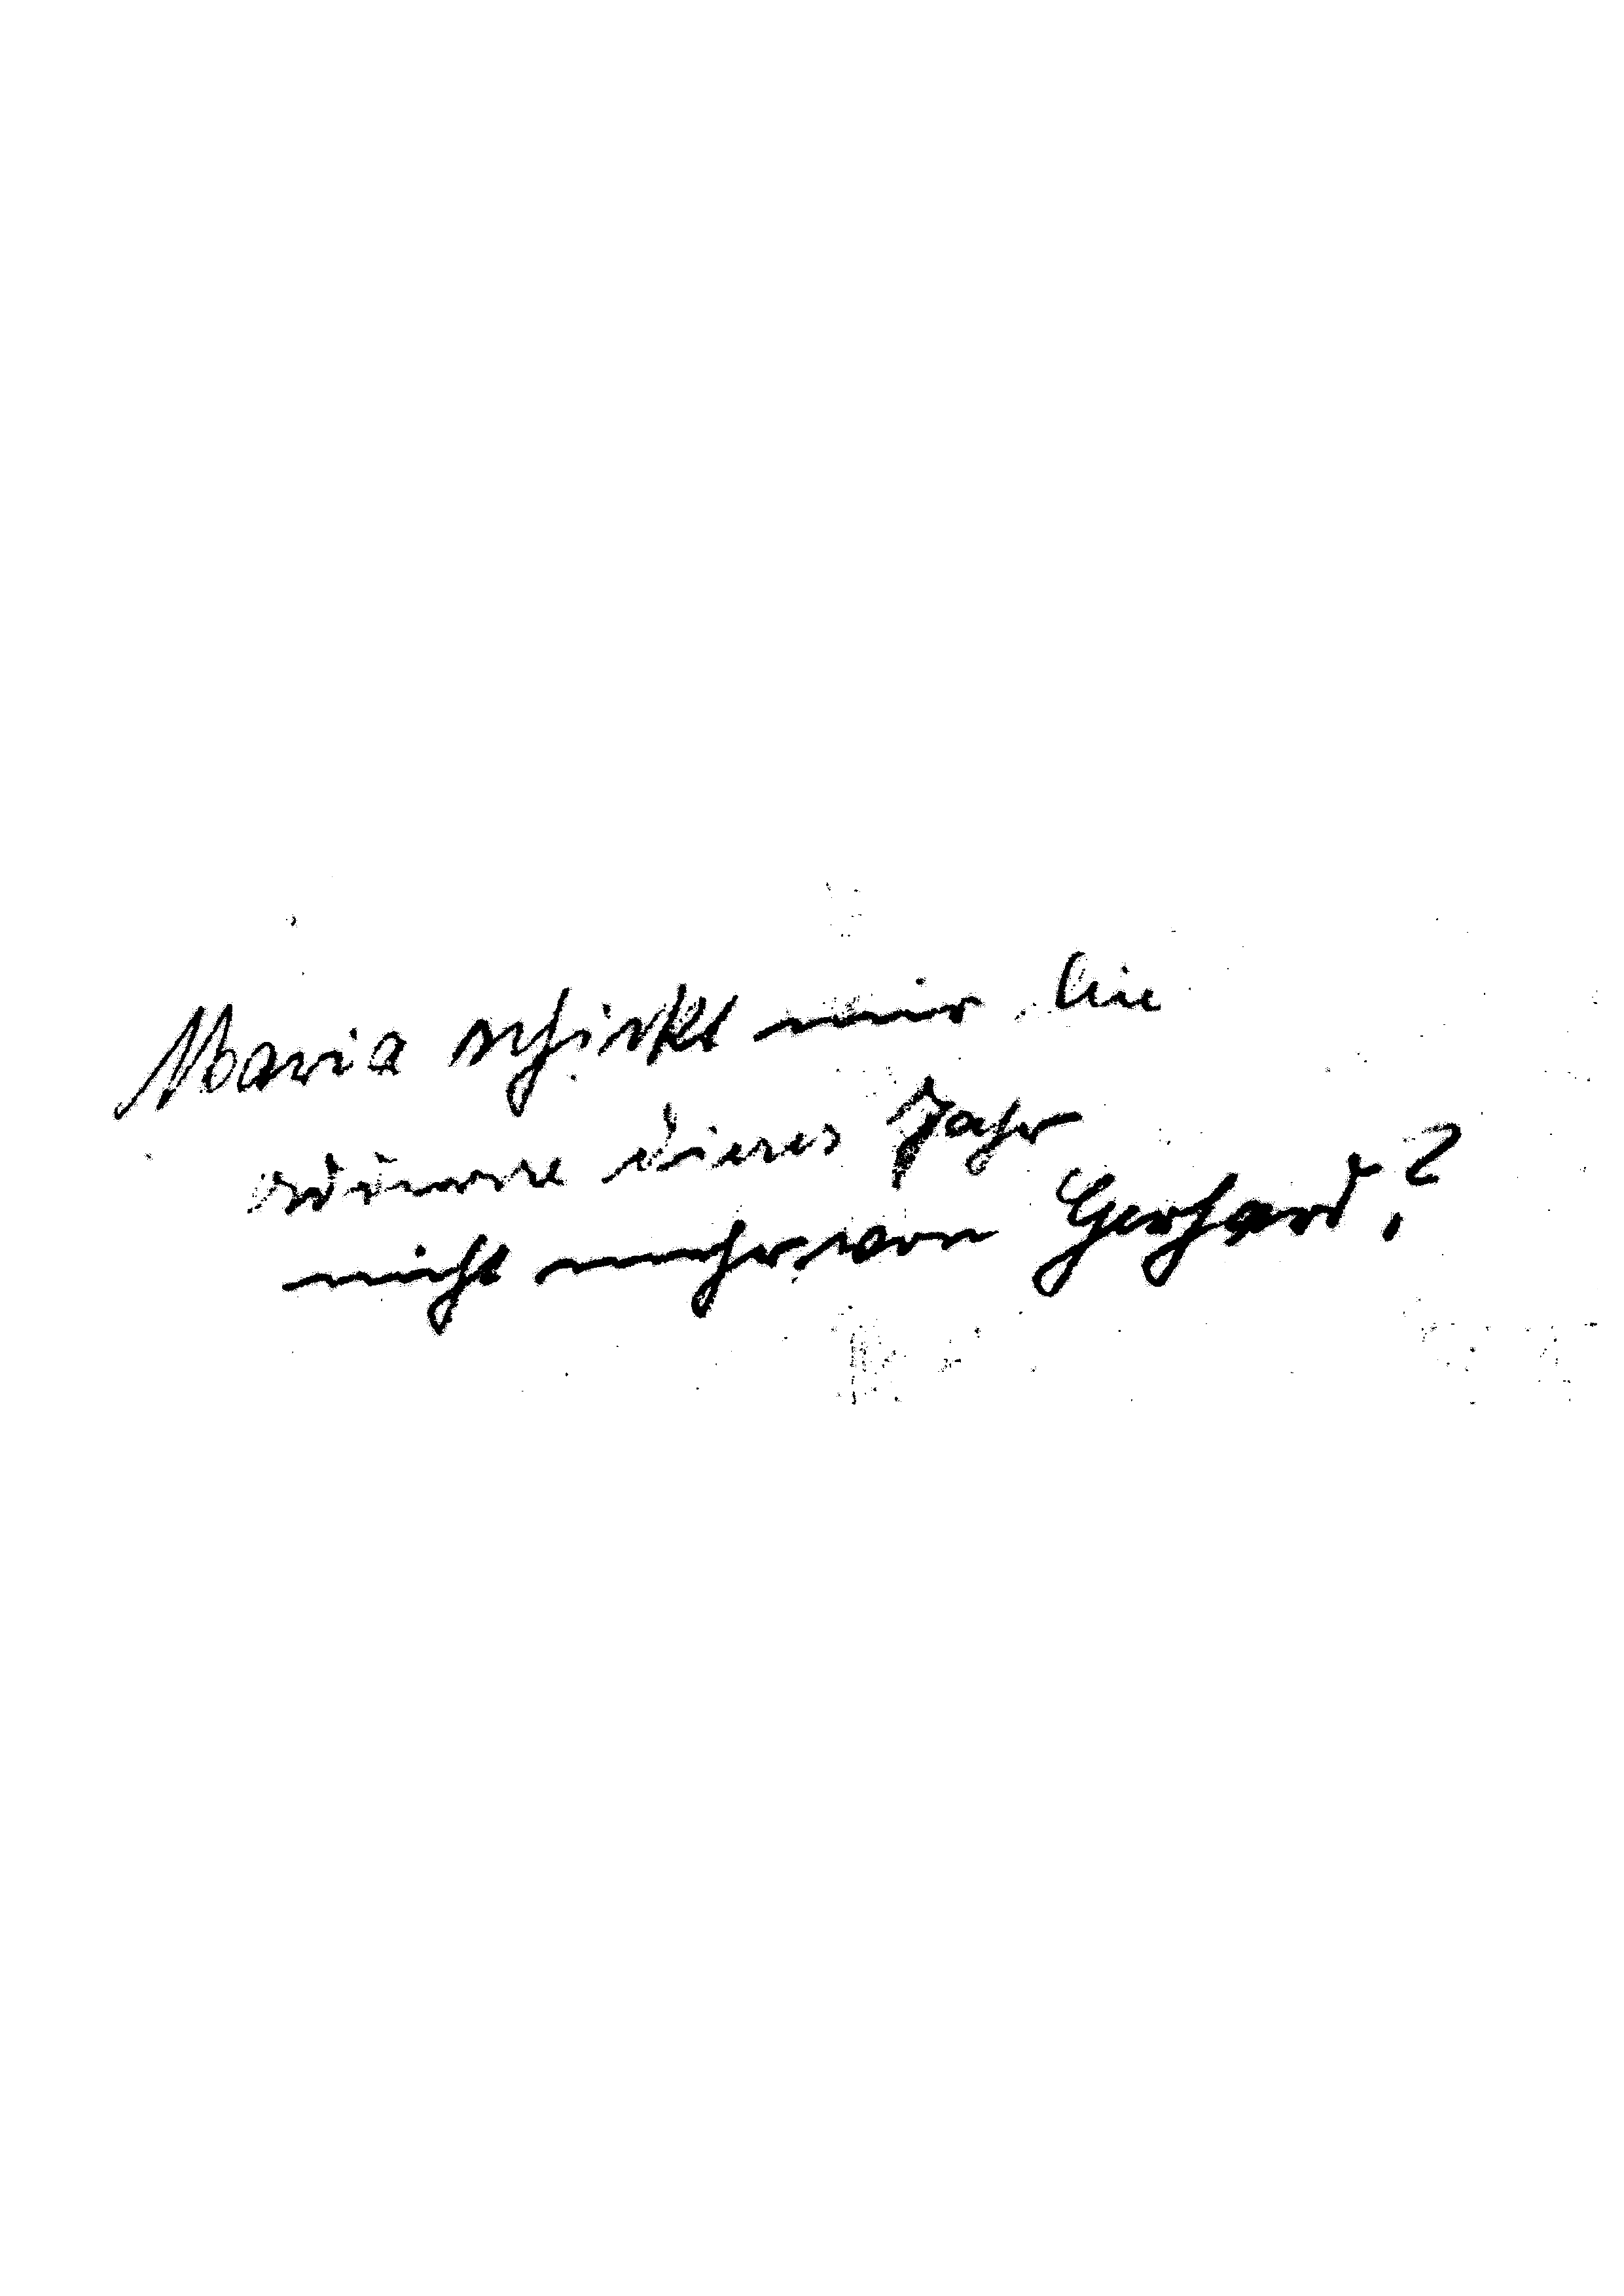 Maria schickt mir die
Adresse dieses Jahr
nicht mehr von Gerhard?